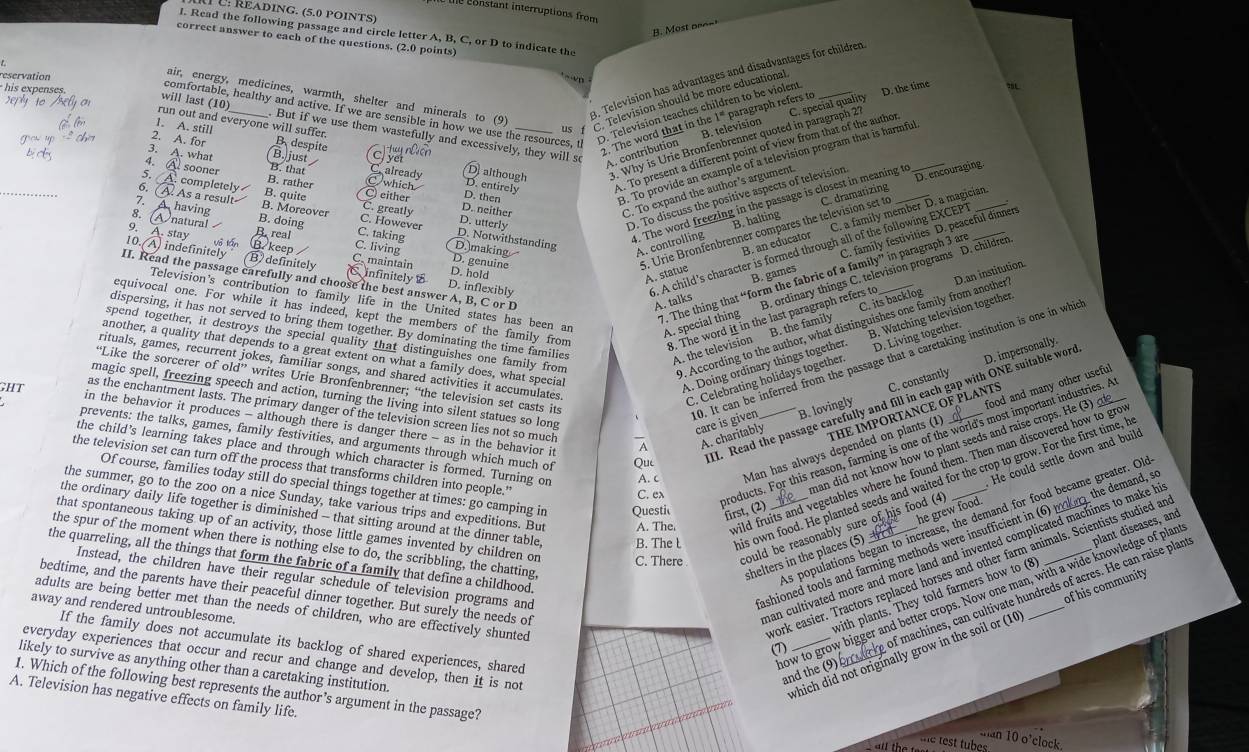 the constant interruptions from
C: READING. (5.0 POINTS)
I. Read the following passage and circle letter A, B, C, or D to indicate the
correct answer to each of the questions. (2.0 points)
reservation
his expenses.
air, energy, medicines, warmth, shelter and minerals to (9) ______ us
comfortable, healthy and active. If we are sensible in how we use the resources,
will last (10)______. But if we use them wastefully and excessively, they will
run out and everyone will suffer.
1. A. still B. despite C. yet D. although
2. A. for B. just C. already D. entirely
3. A. what B. that C. which D. then
4. A. sooner B. rather C. either D. neither
5. A. completely B. quite C. greatly D. utterly
6. A. As a result B. Moreover C. However D. Notwithstanding
7. A. having B. doing C. taking D. making
8. A. natural B. real C. living D. genuine
9. A. stay B. keep C. maintain D. hold
10. A. indefinitely B. definitely C. infinitely D. inflexibly
II. Read the passage carefully and choose the best answer A, B, C or D
Television's contribution to family life in the United states has been an
equivocal one. For while it has indeed, kept the members of the family from
dispersing, it has not served to bring them together. By dominating the time families
spend together, it destroys the special quality that distinguishes one family from
another, a quality that depends to a great extent on what a family does, what special
rituals, games, recurrent jokes, familiar songs, and shared activities it accumulates.
“Like the sorcerer of old” writes Urie Bronfenbrenner; “the television set casts its
magic spell, freezing speech and action, turning the living into silent statues so long
as the enchantment lasts. The primary danger of the television screen lies not so much
in the behavior it produces – although there is danger there – as in the behavior it
prevents: the talks, games, family festivities, and arguments through which much of
the child's learning takes place and through which character is formed. Turning on
the television set can turn off the process that transforms children into people.”
Of course, families today still do special things together at times: go camping in
the summer, go to the zoo on a nice Sunday, take various trips and expeditions. But
the ordinary daily life together is diminished – that sitting around at the dinner table,
that spontaneous taking up of an activity, those little games invented by children on
the spur of the moment when there is nothing else to do, the scribbling, the chatting,
the quarreling, all the things that form the fabric of a family that define a childhood.
Instead, the children have their regular schedule of television programs and
bedtime, and the parents have their peaceful dinner together. But surely the needs of
adults are being better met than the needs of children, who are effectively shunted
away and rendered untroublesome.
If the family does not accumulate its backlog of shared experiences, shared
everyday experiences that occur and recur and change and develop, then it is not
likely to survive as anything other than a caretaking institution.
1. Which of the following best represents the author's argument in the passage?
A. Television has negative effects on family life.
B. Television has advantages and disadvantages for children.
C. Television should be more educational.
D. Television teaches children to be violent.
2. The word that in the 1st paragraph refers to ______
A. contribution B. television C. special quality D. the time
3. Why is Urie Bronfenbrenner quoted in paragraph 2?
A. To present a different point of view from that of the author.
B. To provide an example of a television program that is harmful.
C. To expand the author's argument.
D. To discuss the positive aspects of television.
4. The word freezing in the passage is closest in meaning to ______
A. controlling B. halting C. dramatizing D. encouraging.
5. Urie Bronfenbrenner compares the television set to ______
A. statue B. an educator C. a family member D. a magician.
6. A child's character is formed through all of the following EXCEPT ______.
A. talks B. games C. family festivities D. peaceful dinners
7. The thing that “form the fabric of a family” in paragraph 3 are ______
A. special thing B. ordinary things C. television programs D. children.
8. The word it in the last paragraph refers to______
A. the television B. the family C. its backlog D.an institution.
9. According to the author, what distinguishes one family from another?
A. Doing ordinary things together. B. Watching television together.
C. Celebrating holidays together. D. Living together.
10. It can be inferred from the passage that a caretaking institution is one in which
care is given______
A. charitably B. lovingly C. constantly D. impersonally.
III. Read the passage carefully and fill in each gap with ONE suitable word.
THE IMPORTANCE OF PLANTS
Man has always depended on plants (1) of food and many other useful
products. For this reason, farming is one of the world's most important industries. At
first, (2) the man did not know how to plant seeds and raise crops. He (3) ate
wild fruits and vegetables where he found them. Then man discovered how to grow
his own food. He planted seeds and waited for the crop to grow. For the first time, he
could be reasonably sure of his food (4) ______. He could settle down and build
shelters in the places (5) ______ he grew food.
As populations began to increase, the demand for food became greater. Old-
fashioned tools and farming methods were insufficient in (6) making the demand, so
man cultivated more and more land and invented complicated machines to make his
work easier. Tractors replaced horses and other farm animals. Scientists studied and
(7) ______ with plants. They told farmers how to (8) ______ plant diseases, and
how to grow bigger and better crops. Now one man, with a wide knowledge of plants
and the (9) of machines, can cultivate hundreds of acres. He can raise plants
which did not originally grow in the soil or (10) ______ of his community
GHT
A
Que
A. c
C. ex
Questi
A. The
B. The
C. There
B. Most
test tubes
10 o'clock.
all the